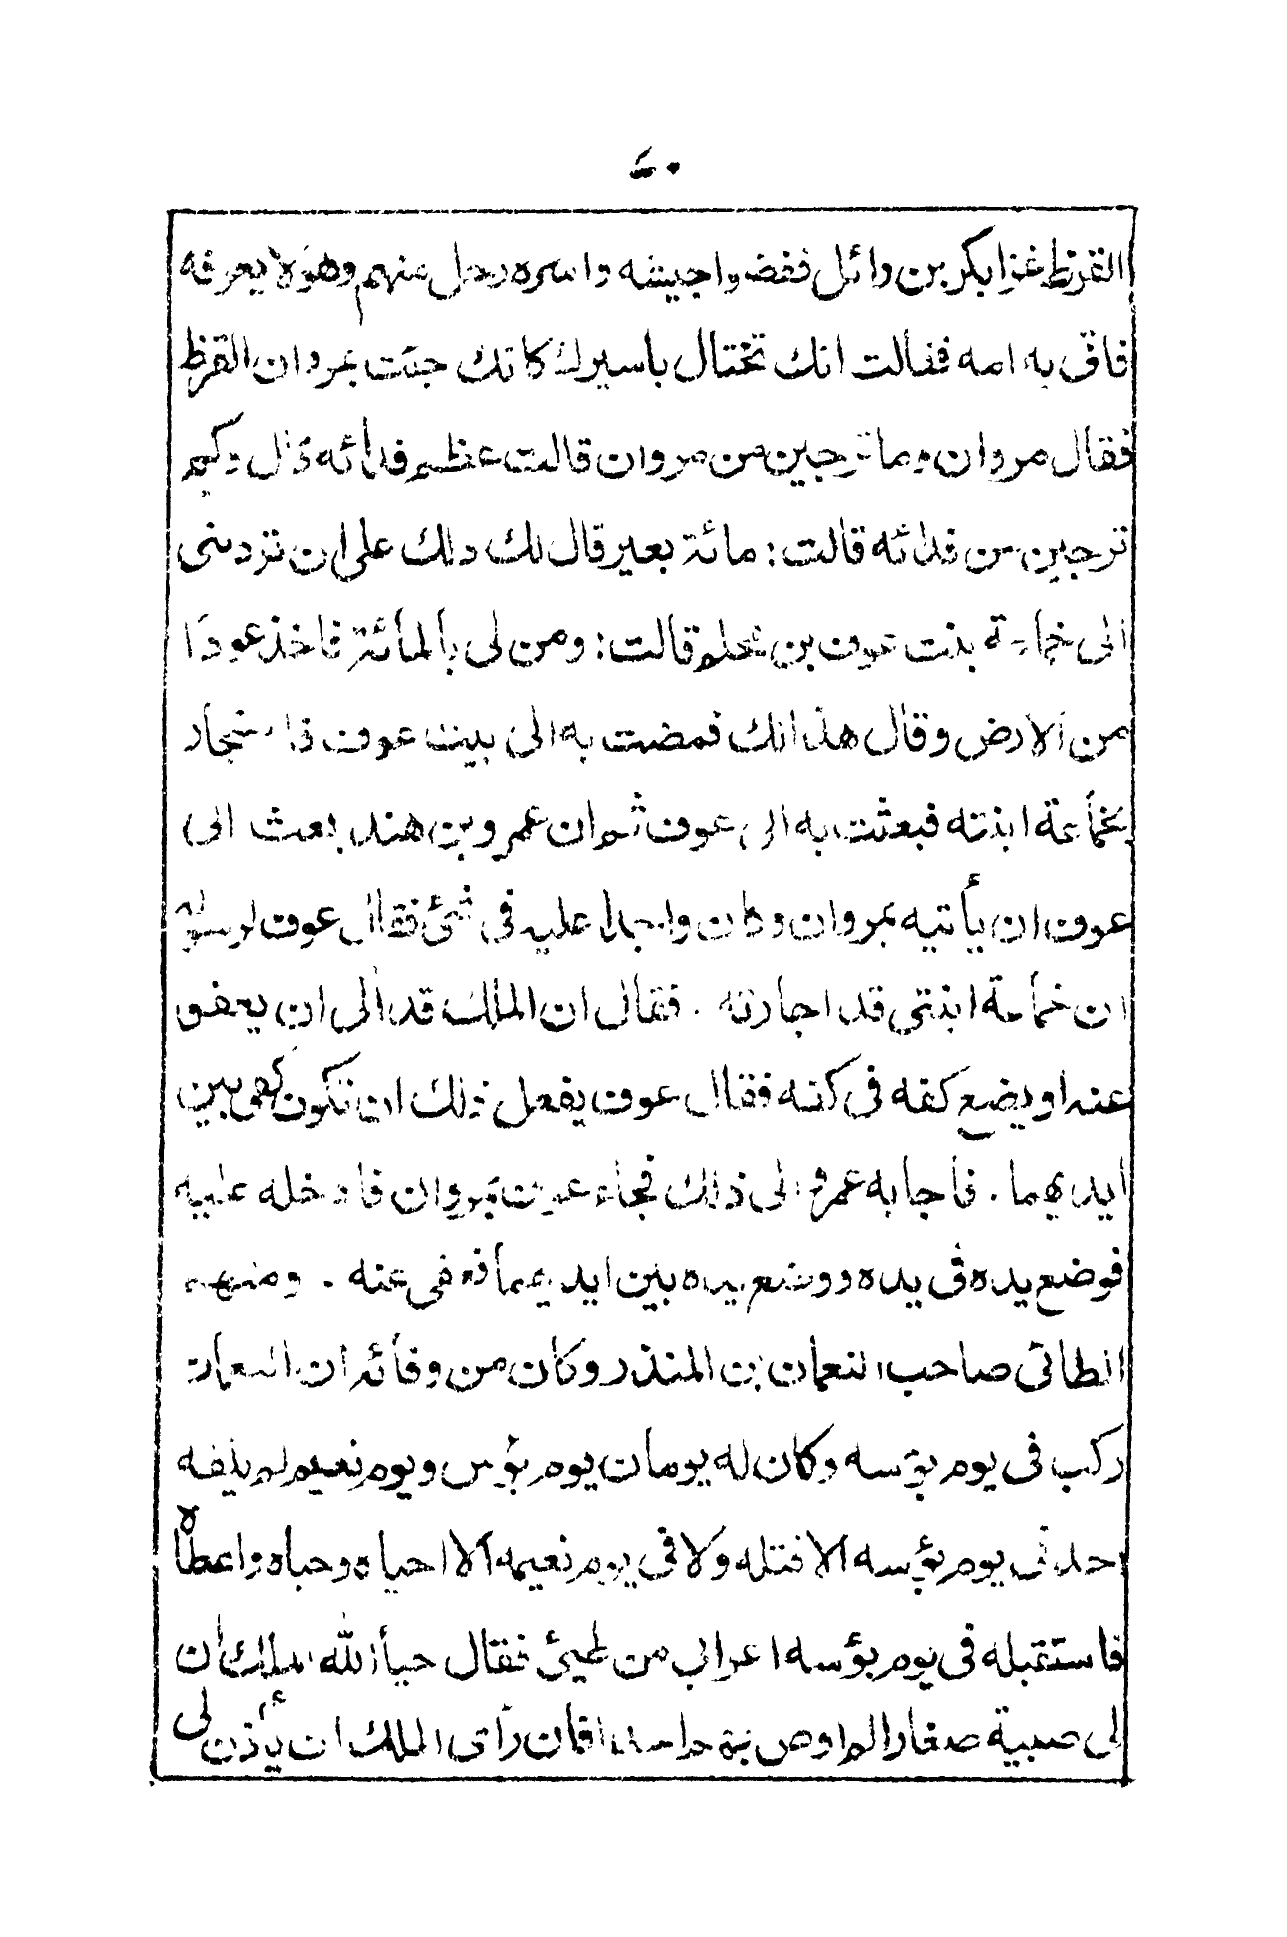 ٤٠
القرظ غزا بكر بن وائل ففضوا جيشه واسره رجل منهم وهو لا يعرفه
فاتى به امه فقالت انك تختال باسيرك كانك جئت بمروان القرظ
فقال مروان وما ترجين من مروان قالت عظم فدائه قال وكم
ترجين من فدائه قالت: مائة بعير قال لك ذلك على ان تردينى
الى خماعة بنت عوف بن محلم قالت: ومن لى بالمائة فاخذ عودا
من الارض وقال هذا لك فمضت به الى بيت عوف فاستجار
بخماعة ابنته فبعثت به الى عوف ثم ان عمرو بن هند بعث الى
عوف ان يأتيه بمروان وكان واجدا عليه فى شئ فقال عوف لرسوله
ان خماعة ابنتى قد اجارته . فقال ان الملك قد آلى ان يعفو
عنه او يضع كفه فى كفه فقال عوف يفعل ذلك ان تكون كفى بين
ايديهما . فاجابه عمرو الى ذلك فجاء عوف بمروان فادخله عليه
فوضع يده فى يده ووضع يده بين ايديهما فعفى عنه . ومنهم
الطائى صاحب النعمان بن المنذر وكان من وفائه ان النعمان
ركب فى يوم بؤسه وكان له يومان يوم بؤس ويوم نعيم لم يلقه
احد فى يوم بؤسه الا قتله ولا فى يوم نعيمه الا احياه وحباه واعطاه
فاستقبله فى يوم بؤسه اعرابى من طيئ فقال حيا الله الملك ان
لى صبية صغارا لم اوص بهم احدا فان رأى الملك ان يأذن لى